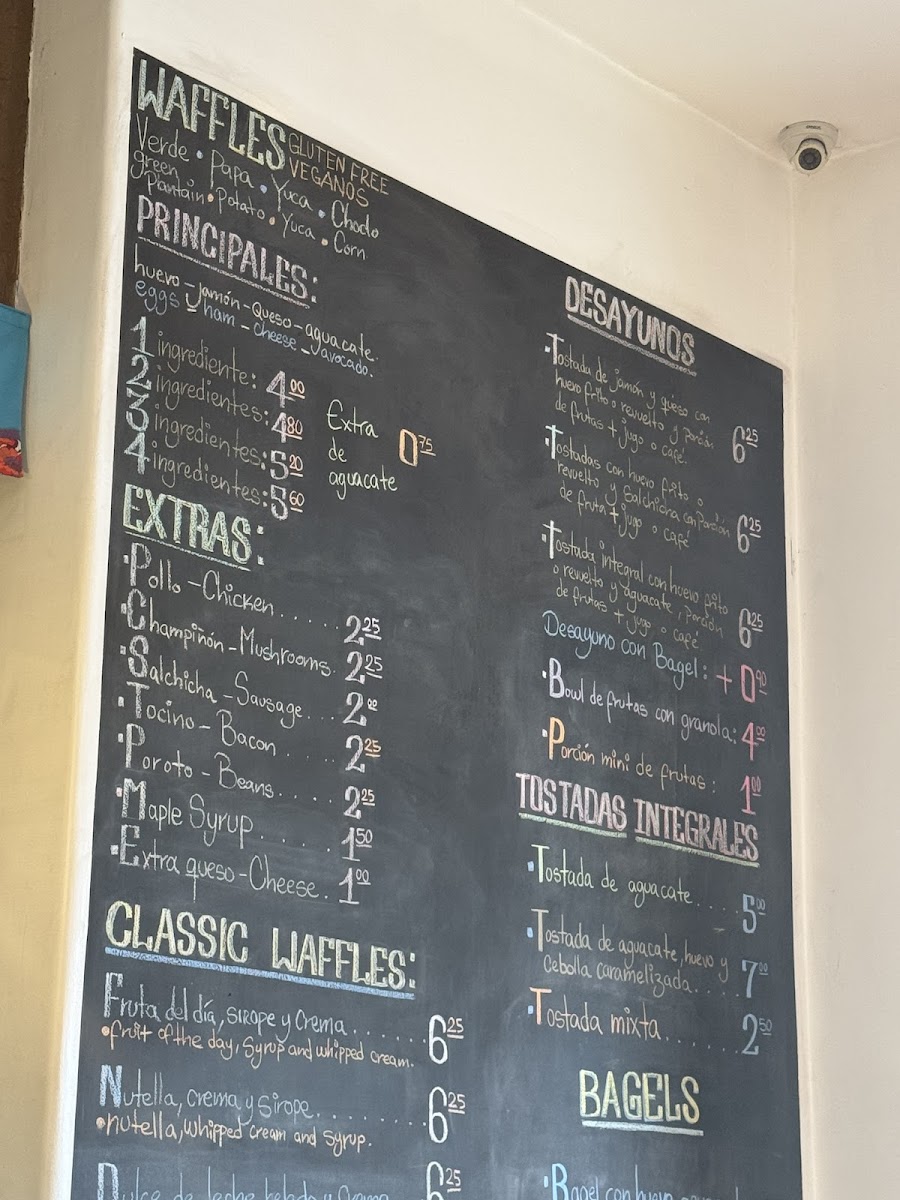 WAFFLES GLUTEN FREE
VEGANOS
Verde • Papa • Yuca • Choclo
green
Plantain • Potato • Yuca • Corn
PRINCIPALES:
huevo - jamón - queso - aguacate.
eggs - ham - cheese - avocado.
1 ingrediente: 4.00
2 ingredientes: 4.80
3 ingredientes: 5.20
4 ingredientes: 5.60
Extra
de
aguacate
0.75
EXTRAS:
• Pollo - Chicken...... 2.25
• Champiñón - Mushrooms. 2.25
• Salchicha - Sausage... 2.00
• Tocino - Bacon... 2.25
• Poroto - Beans..... 2.25
• Maple Syrup...... 1.50
• Extra queso - Cheese. 1.00
CLASSIC WAFFLES:
Fruta del día, sirope y crema........ 6.25
• fruit of the day, syrup and whipped cream.
Nutella, crema y sirope........ 6.25
• nutella, whipped cream and syrup.
Dulce de leche helado y crema 6.25
DESAYUNOS
• Tostada de jamón y queso con
huevo frito o revuelto y porción
de frutas + jugo o café. 6.25
• Tostadas con huevo frito o
revuelto y salchicha con porción
de fruta + jugo o café 6.25
• Tostada integral con huevo frito
o revuelto y aguacate, porción
de frutas + jugo o café 6.25
Desayuno con Bagel: + 0.90
• Bowl de frutas con granola: 4.00
• Porción mini de frutas: 1.00
TOSTADAS INTEGRALES
• Tostada de aguacate..... 5.00
• Tostada de aguacate, huevo y
cebolla caramelizada..... 7.00
• Tostada mixta........ 2.50
BAGELS
• Bagel con huevo